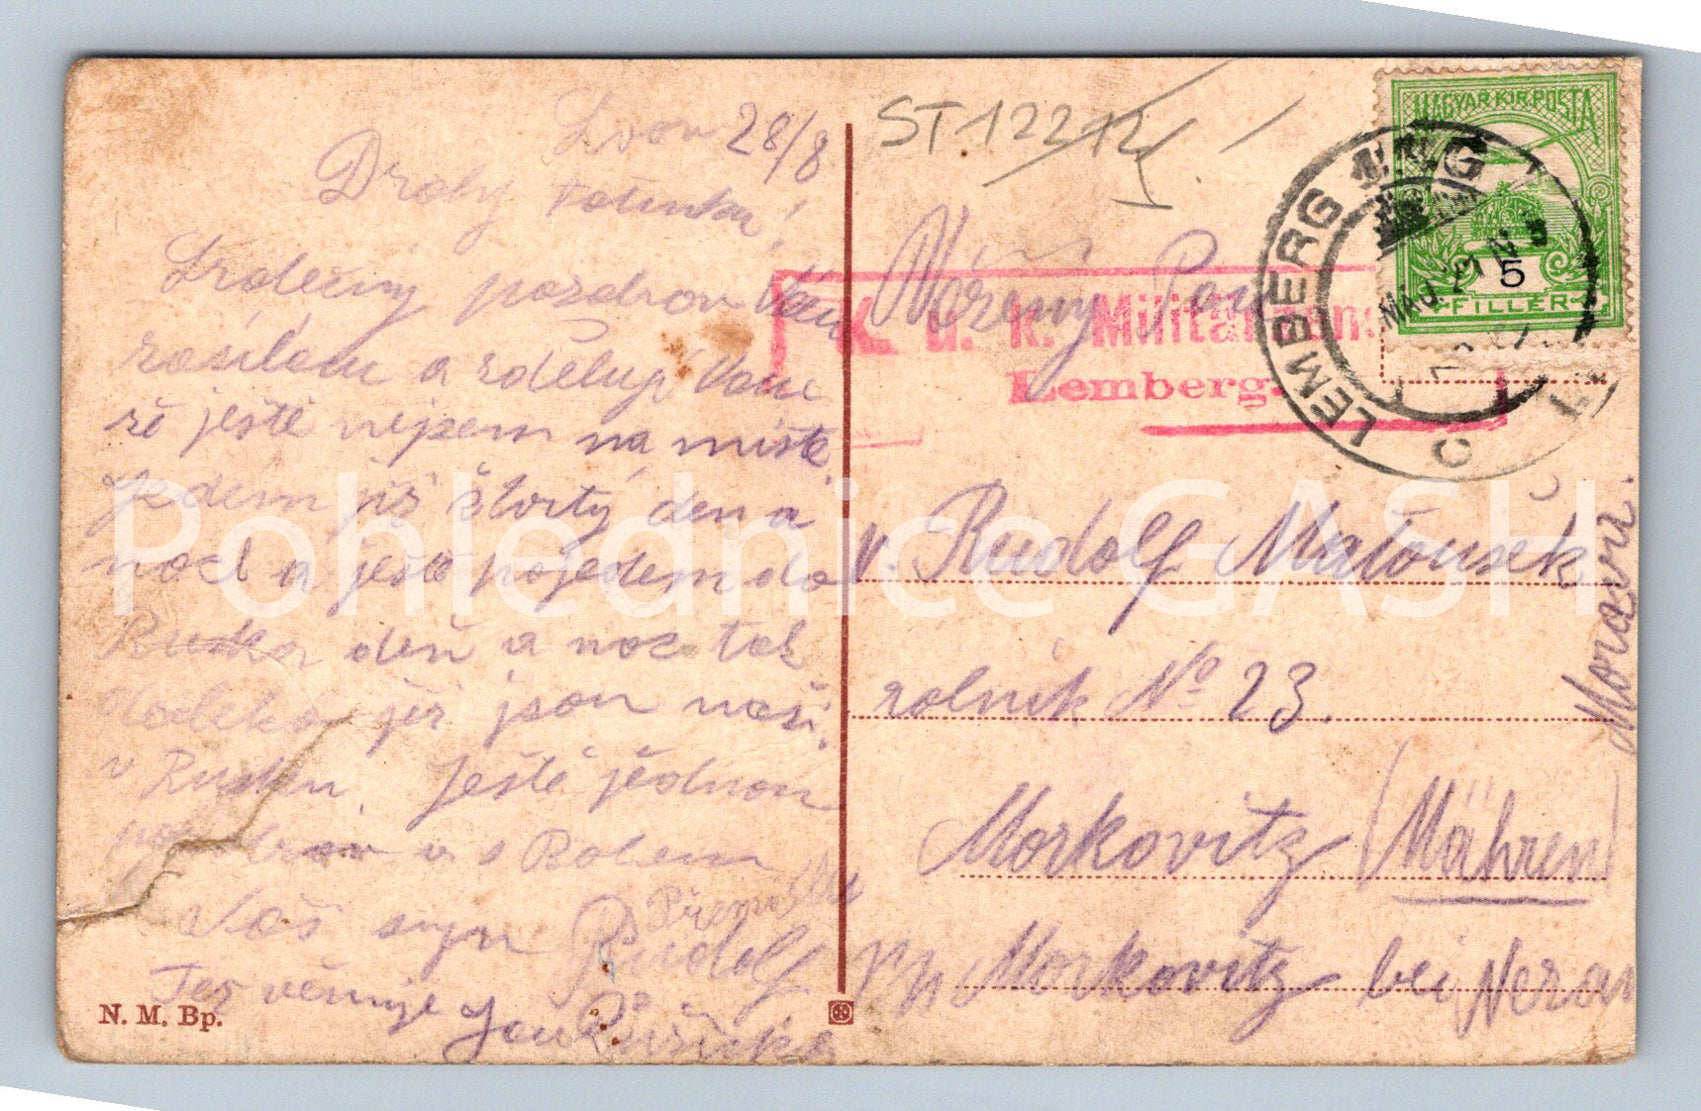 Lvov 28/8
Drahý Tatínku!
Srdečný pozdrav Vám
zasílám a zděluji Vám
že ještě nejsem na místě.
Jedem již štvrtý den a
noc a ještě pojedem do
Ruska deň a noc tak
daleko již jsou naši
v Rusku. Ještě jednou
pozdrav a s Bohem
Váš syn Rudolf
Též věnuje Jan Růžička
N. M. Bp.
ST 12212
MAGYAR KIR. POSTA
5
FILLÉR
LEMBERG
K. u. k. Militärzens
Lemberg.
Vážený Pan
Rudolf Matoušek
rolník No 23.
Morkovitz (Mähren)
Morkovitz bei
Moravia.
Pohlednice GASH